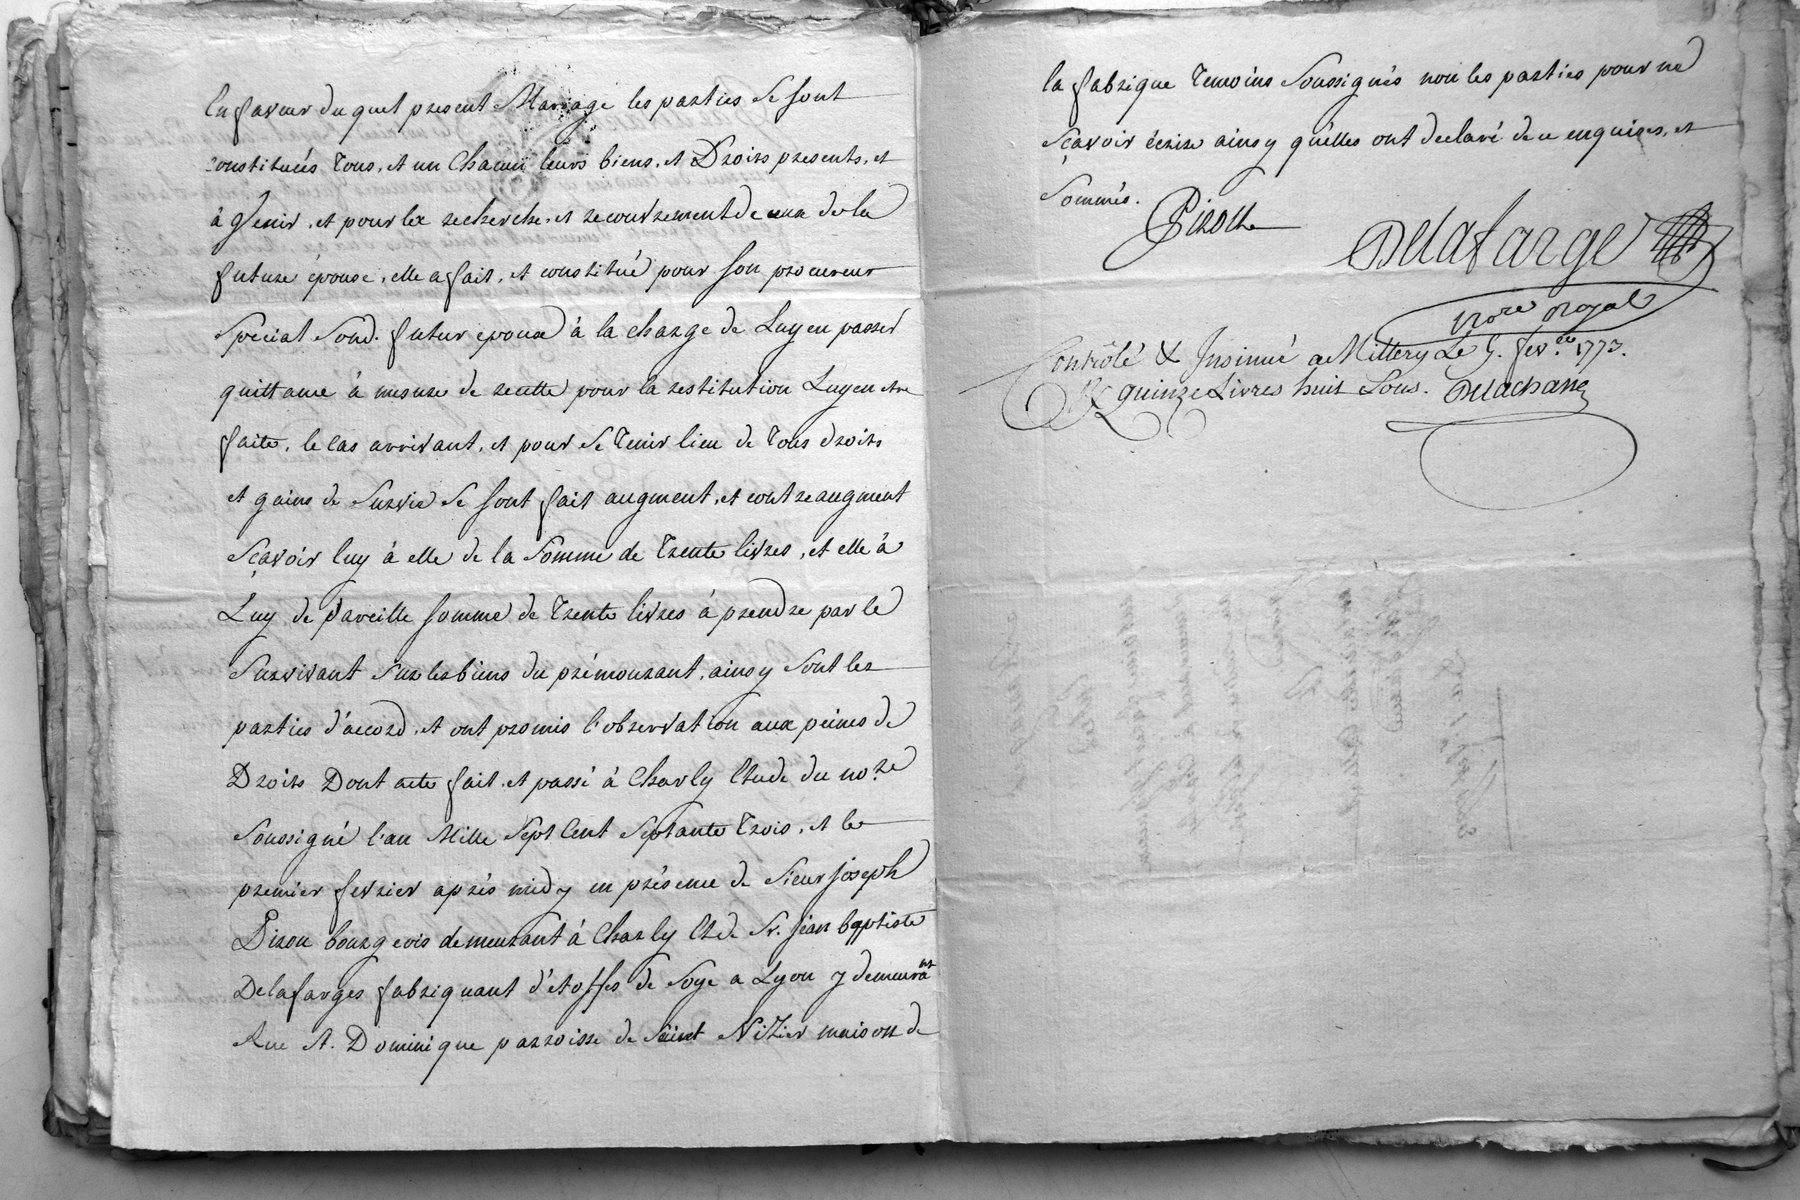 En faveur du quel present Mariage les parties se sont
constitués tous, et un chacun leurs biens, et Droits presents, et
à venir, et pour la recherche, et recouvrement de ceux de la
future épouse, elle a fait, et constitué pour son procureur
special son d. futur epoux à la charge de luy en passer
quittance à mesure de recette pour la restitution luy en etre
faite, le cas arrivant, et pour se tenir lieu de tous droits
et gains de survie se sont fait augment, et contreaugment
sçavoir luy à elle de la somme de trente livres, et elle à
Luy de pareille somme de trente livres à prendre par le
survivant sur les biens du prémourant, ainsy sont les
parties d'accord, et ont promis l'observation aux peines de
Droits Dont acte fait et passé à Charly Etude du no.re
soussigné l'an Mille sept Cent septante trois, et le
premier fevrier aprés midy en présence de sieur joseph
Pizou bourgeois demeurant à Charly Et de Sr. jean baptiste
Delafarges fabriquant d'étoffes de soye a Lyon y demeurant
Rue St. Dominique parroisse de saint Nizier maison de
la fabrique temoins soussignés non les parties pour ne
sçavoir écrire ainsy qu'elles ont declaré de ce enquises, et
sommés.
Delafarge
No.re Royal
Contrôlé & Insinué a Millery Le fev.er 1773.
R quinze Livres huit sous. Delachasse